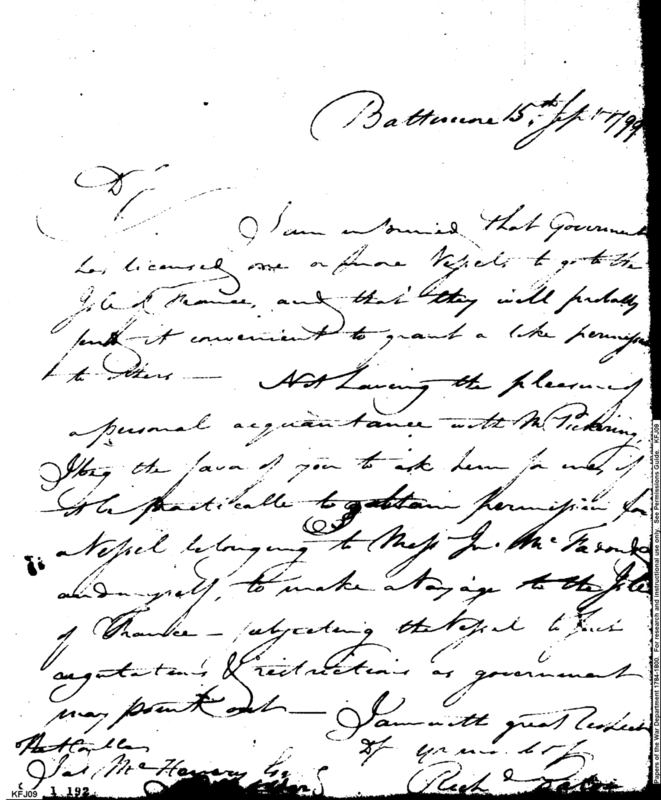 Baltimore 15th Sept 1799
Dr
I am informed that Government
has licensed one or more Vessels to go to the
Isle of France, and that they will probably
find it convenient to grant a like permission
to others — Not having the pleasure of
a personal acquaintance with Mr. Pickering,
I beg the favor of you to ask him for me, if
it be practicable to obtain permission for
a Vessel belonging to Mess Jn. McFadon &
and myself, to make a Voyage to the Isle
of France — subjecting the Vessel to such
regulations & restrictions as government
may point out — I am with great Respect
Dr yr mo. ob
The Honble
Jas McHenry Esq
Richd
KFJ09 1 192
Papers of the War Department 1784-1800. For research and instructional use only. See Permissions Guide. KFJ09